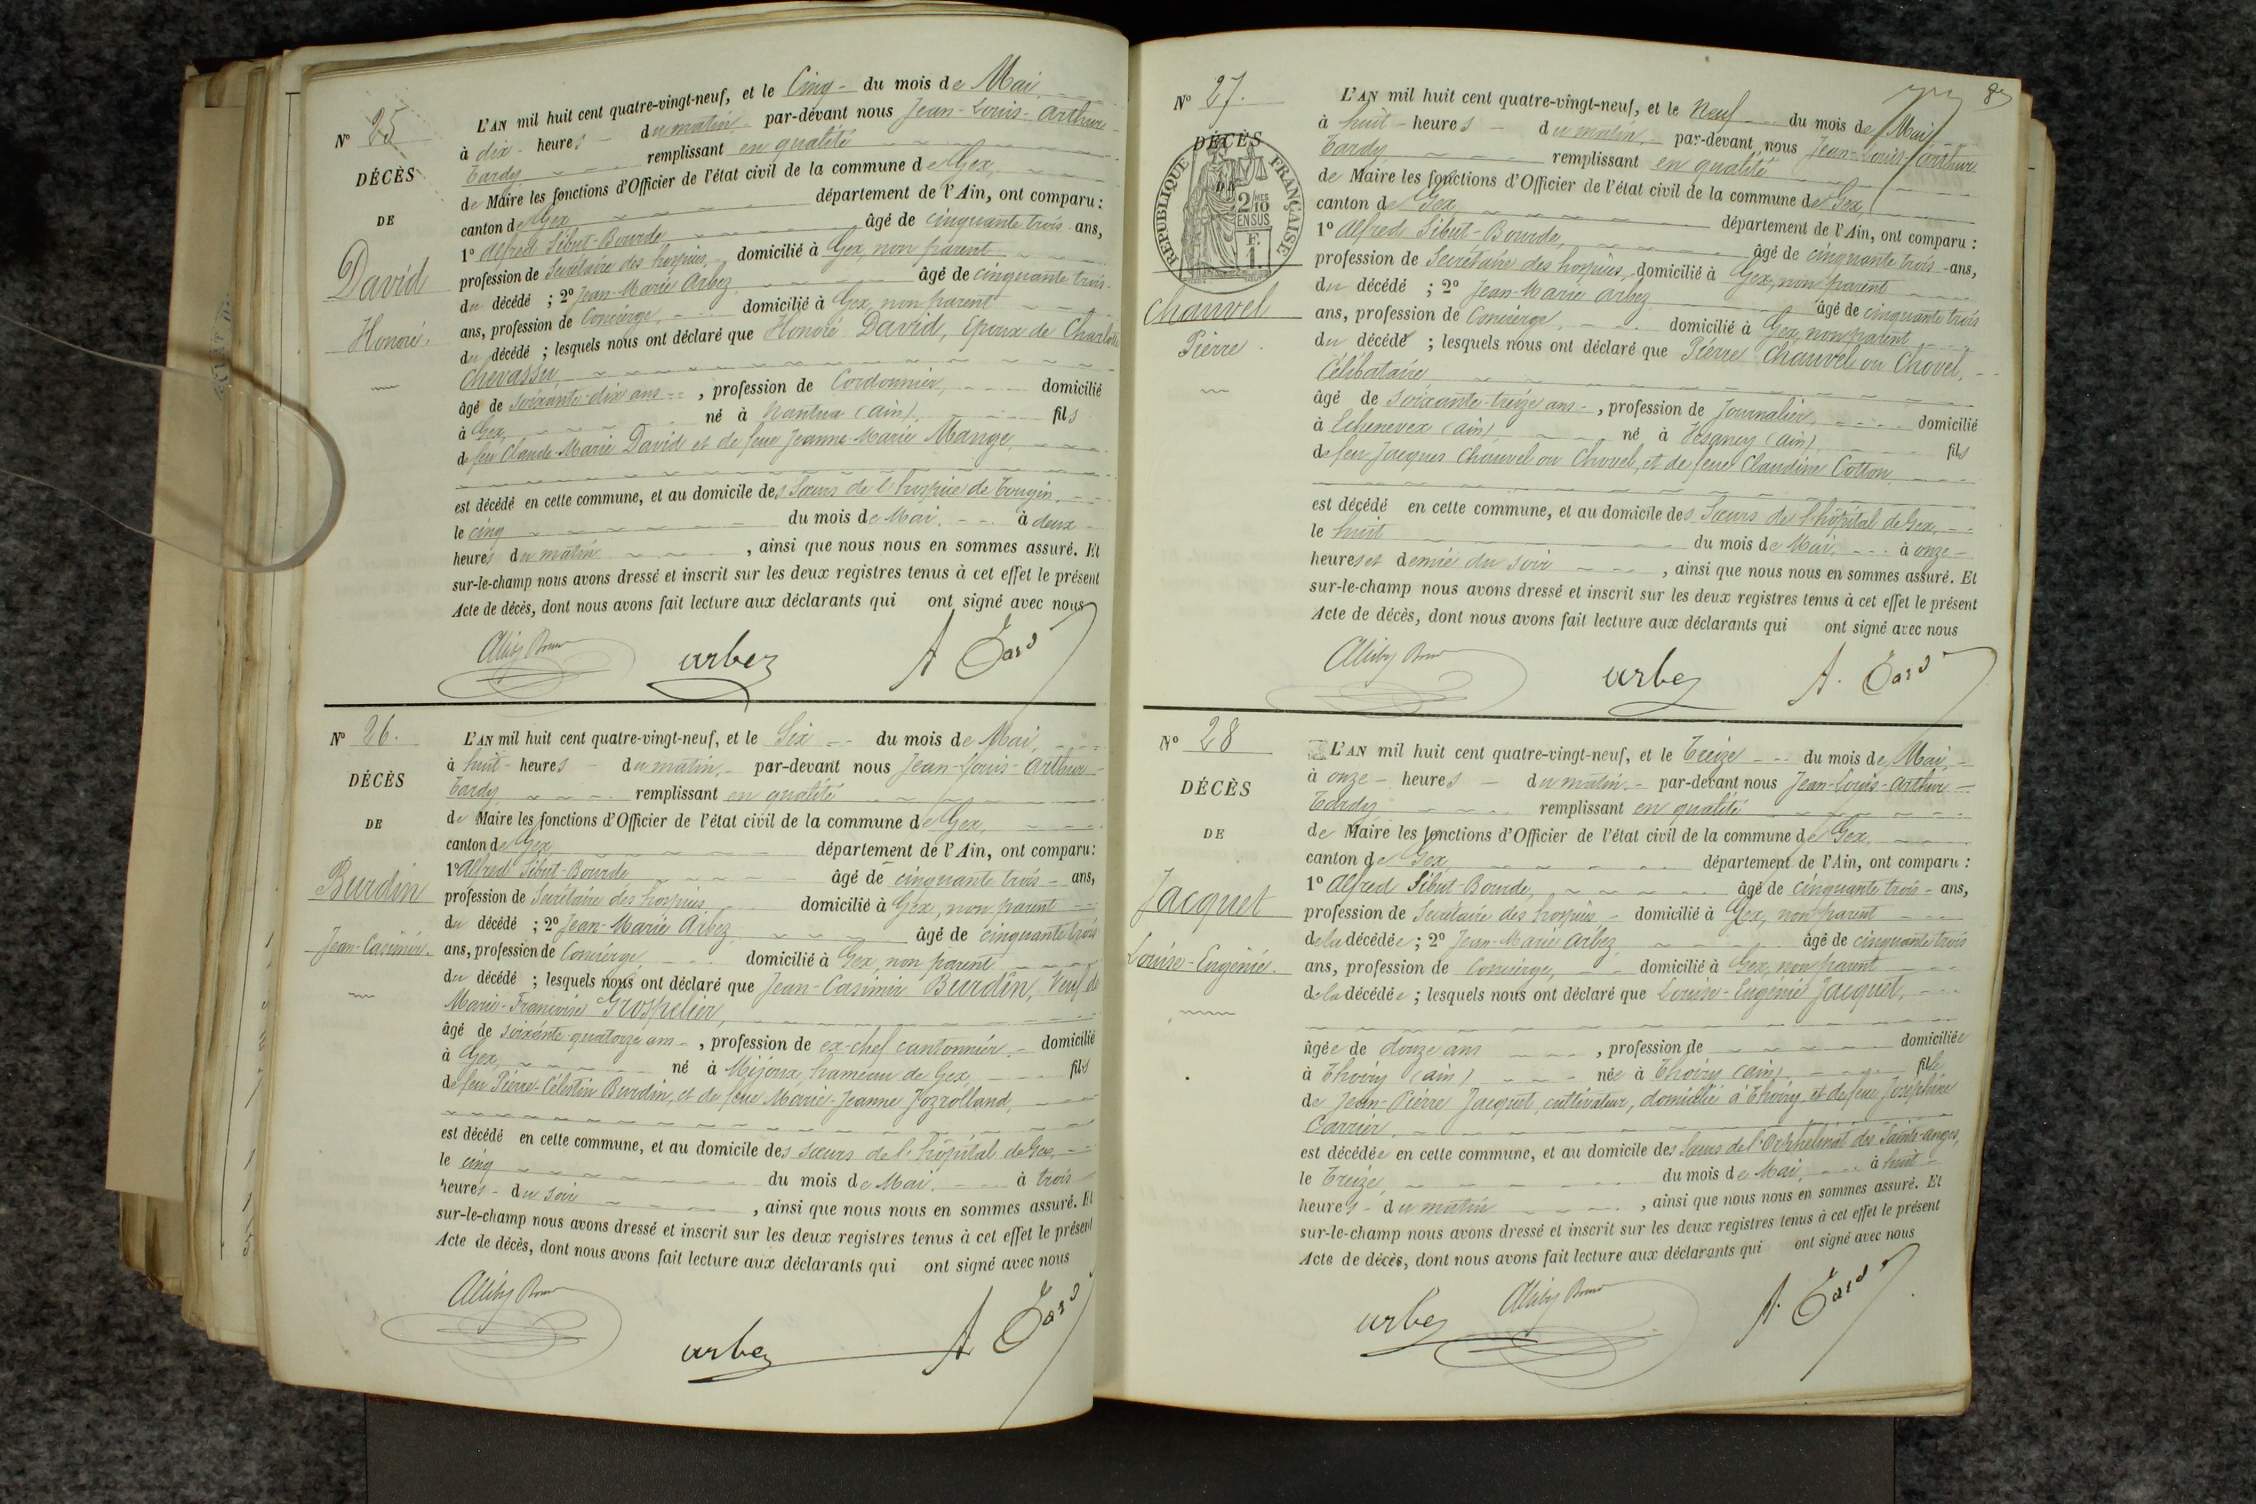 N° 25
DÉCÈS
DE
David
Honoré.
L'AN mil huit cent quatre-vingt-neuf, et le Cinq du mois de Mai,
à dix heures du matin par-devant nous Jean-Louis-Arthur
Tardy remplissant en qualité
de Maire les fonctions d'Officier de l'état civil de la commune de Gex,
canton de Gex département de l'Ain, ont comparu :
1° Alfred Sibut-Bourde âgé de cinquante trois ans,
profession de Secrétaire des hospices, domicilié à Gex, non parent
du décédé ; 2° Jean-Marie Arbez âgé de cinquante trois
ans, profession de Concierge, domicilié à Gex, non parent
du décédé ; lesquels nous ont déclaré que Honoré David, Epoux de Charlotte
Chevassu,
âgé de soixante-dix ans, profession de Cordonnier, domicilié
à Gex, né à Nantua (Ain), fils
de feu Claude-Marie David et de feue Jeanne-Marie Mange,
est décédé en cette commune, et au domicile des Sœurs de l'hospice de Tougin,
le cinq du mois de Mai, à deux
heures du matin, ainsi que nous nous en sommes assuré. Et
sur-le-champ nous avons dressé et inscrit sur les deux registres tenus à cet effet le présent
Acte de décès, dont nous avons fait lecture aux déclarants qui ont signé avec nous
arbez A Tardy
N° 26.
DÉCÈS
DE
Burdin
Jean-Casimir.
L'AN mil huit cent quatre-vingt-neuf, et le Six du mois de Mai,
à huit heures du matin, par-devant nous Jean-Louis-Arthur
Tardy remplissant en qualité
de Maire les fonctions d'Officier de l'état civil de la commune de Gex,
canton de Gex département de l'Ain, ont comparu :
1° Alfred Sibut-Bourde âgé de cinquante trois ans,
profession de Secrétaire des hospices domicilié à Gex, non parent
du décédé ; 2° Jean-Marie Arbez âgé de cinquante trois
ans, profession de Concierge domicilié à Gex, non parent
du décédé ; lesquels nous ont déclaré que Jean-Casimir Burdin, Veuf de
Marie-Françoise Grospelier,
âgé de soixante quatorze ans, profession de ex-chef cantonnier, domicilié
à Gex, né à Mijoux, hameau de Gex, fils
de feu Pierre-Célestin Burdin, et de feue Marie-Jeanne Pozrolland,
est décédé en cette commune, et au domicile des sœurs de l'hôpital de Gex,
le cinq du mois de Mai, à trois
heures du soir, ainsi que nous nous en sommes assuré. Et
sur-le-champ nous avons dressé et inscrit sur les deux registres tenus à cet effet le présent
Acte de décès, dont nous avons fait lecture aux déclarants qui ont signé avec nous
arbez A Tardy
87
N° 27.
DÉCÈS
RÉPUBLIQUE FRANÇAISE
2/10 EN SUS
F. 1
Chauvel
Pierre.
L'AN mil huit cent quatre-vingt-neuf, et le Neuf du mois de Mai,
à huit heures du matin, par-devant nous Jean-Louis-Arthur
Tardy remplissant en qualité
de Maire les fonctions d'Officier de l'état civil de la commune de Gex,
canton de Gex, département de l'Ain, ont comparu :
1° Alfred Sibut-Bourde, âgé de cinquante trois ans,
profession de Secrétaire des hospices domicilié à Gex, non parent
du décédé ; 2° Jean-Marie Arbez âgé de cinquante trois
ans, profession de Concierge, domicilié à Gex, non parent
du décédé ; lesquels nous ont déclaré que Pierre Chauvel ou Chovel,
Célibataire
âgé de soixante-treize ans, profession de Journalier, domicilié
à Echenevex (Ain) né à Vesancy (Ain), fils
de feu Jacques Chauvel ou Chovel, et de feue Claudine Cotton,
est décédé en cette commune, et au domicile des Sœurs de l'hôpital de Gex,
le huit du mois de Mai, à onze
heures et demie du soir, ainsi que nous nous en sommes assuré. Et
sur-le-champ nous avons dressé et inscrit sur les deux registres tenus à cet effet le présent
Acte de décès, dont nous avons fait lecture aux déclarants qui ont signé avec nous
arbez A. Tardy
N° 28
DÉCÈS
DE
Jacquet
Louise-Eugénie.
L'AN mil huit cent quatre-vingt-neuf, et le Treize du mois de Mai,
à onze heures du matin, par-devant nous Jean-Louis-Arthur
Tardy remplissant en qualité
de Maire les fonctions d'Officier de l'état civil de la commune de Gex,
canton de Gex département de l'Ain, ont comparu :
1° Alfred Sibut-Bourde, âgé de cinquante trois ans,
profession de Secrétaire des hospices domicilié à Gex, non parent
de la décédée ; 2° Jean-Marie Arbez âgé de cinquante trois
ans, profession de Concierge, domicilié à Gex, non parent
de la décédée ; lesquels nous ont déclaré que Louise-Eugénie Jacquet,
âgée de douze ans, profession de domiciliée
à Thoiry (Ain) née à Thoiry (Ain) fille
de Jean-Pierre Jacquet, cultivateur, domicilié à Thoiry, et de feue Joséphine
Carrier,
est décédée en cette commune, et au domicile des Sœurs de l'Orphelinat des Saints-Anges,
le Treize, du mois de Mai, à huit
heures du matin, ainsi que nous nous en sommes assuré. Et
sur-le-champ nous avons dressé et inscrit sur les deux registres tenus à cet effet le présent
Acte de décès, dont nous avons fait lecture aux déclarants qui ont signé avec nous
arbez A. Tardy